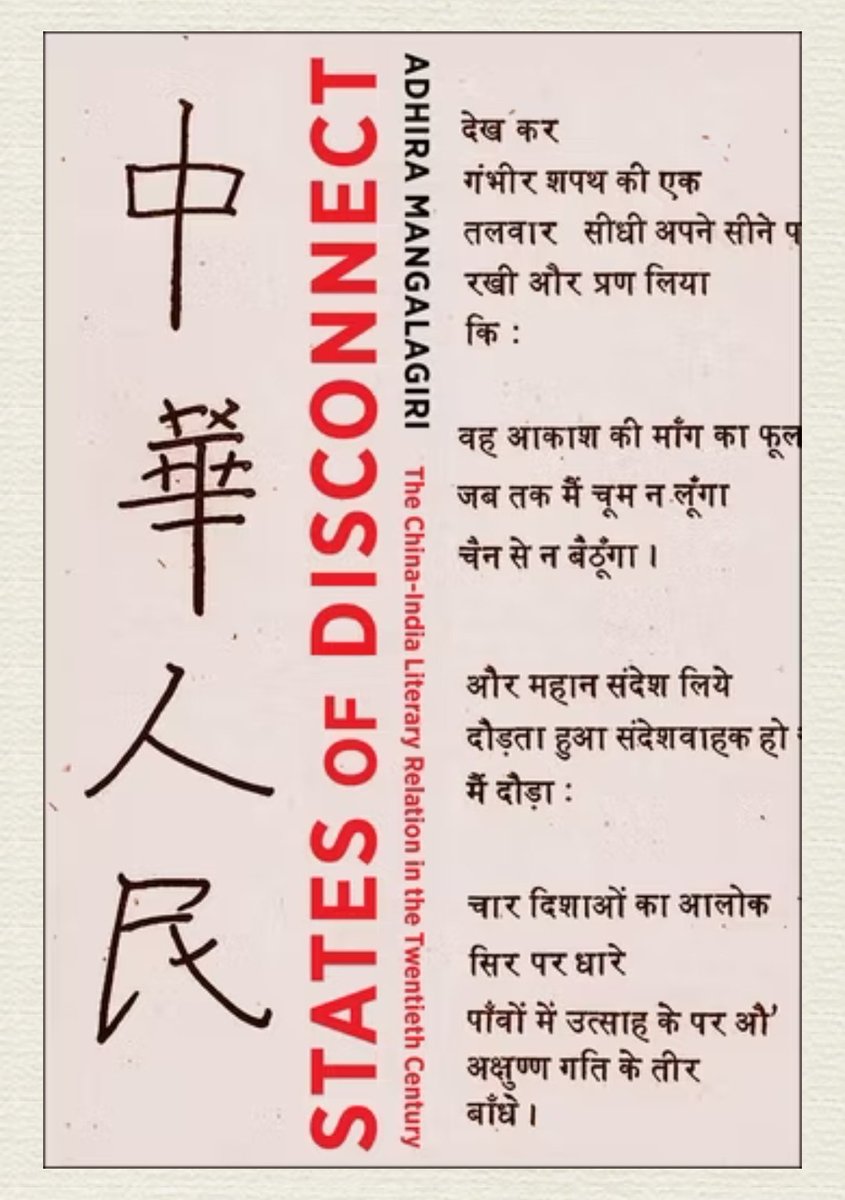 中
華
人
民
STATES OF DISCONNECT
ADHIRA MANGALAGIRI
The China-India Literary Relation in the Twentieth Century
देख कर
गंभीर शपथ की एक
तलवार सीधी अपने सीने प
रखी और प्रण लिया
कि :
वह आकाश की माँग का फूल
जब तक मैं चूम न लूँगा
चैन से न बैठूँगा ।
और महान संदेश लिये
दौड़ता हुआ संदेशवाहक हो
मैं दौड़ा :
चार दिशाओं का आलोक
सिर पर धारे
पाँवों में उत्साह के पर औ’
अक्षुण्ण गति के तीर
बाँधे ।